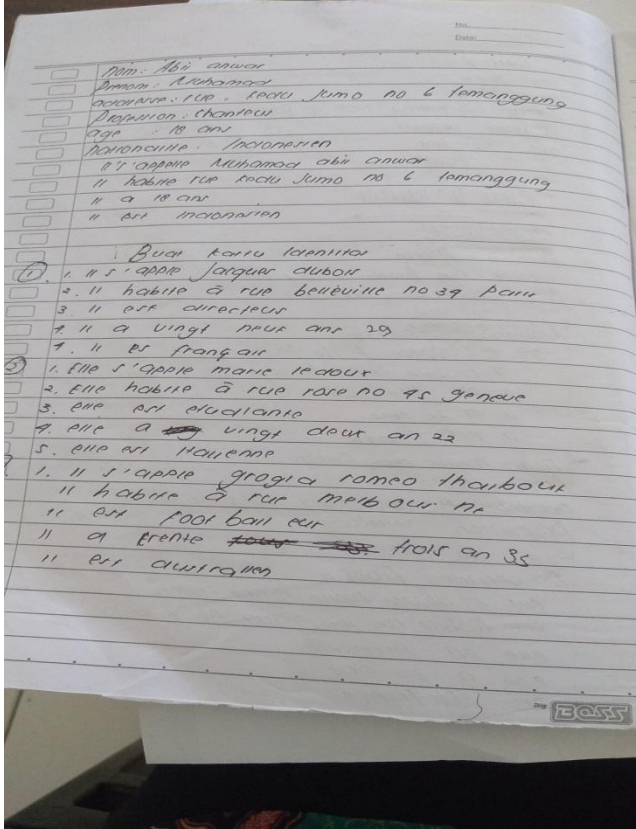 No.
Date:
Nom : Abir anwar
Prenom : Muhamad
addresse : rue . kedu Jumo no 6 temanggung
Profession : Chanteus
age : 18 ans
nationalite : Indonesien
il s'appelle Muhamad abir anwar
il habite rue kedu Jumo no 6 temanggung
il a 18 ans
il est indonesien
Buat kartu Identitas
① 1. il s'apple Jacques dubois
2. il habite à rue belleville no 39 Paris
3 il est directeus
4. il a vingt neuf ans 29
4. il es français
② 1. Elle s'apple marie ledoux
2. Elle habite à rue rose no 45 geneve
3. elle est etudiante
4. elle a vingt deux an 22
5. elle est italienne
1. il s'apple grogia romeo tharboux
il habite à rue melbour ne
il est foot ball eur
il a trente trois an 35
il est australien
BOSS